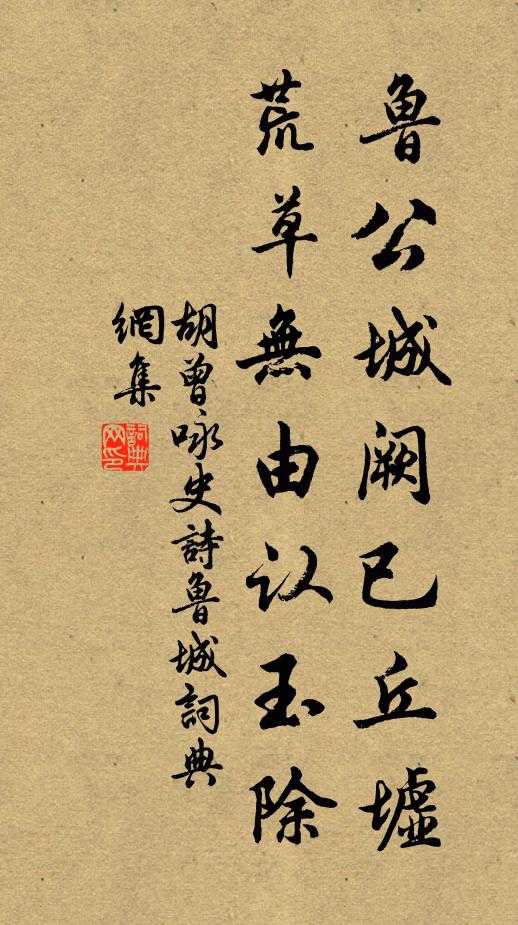 鲁公城阙已丘墟
荒草無由认玉除
胡曾咏史詩鲁城詞典
網集
詞典网印